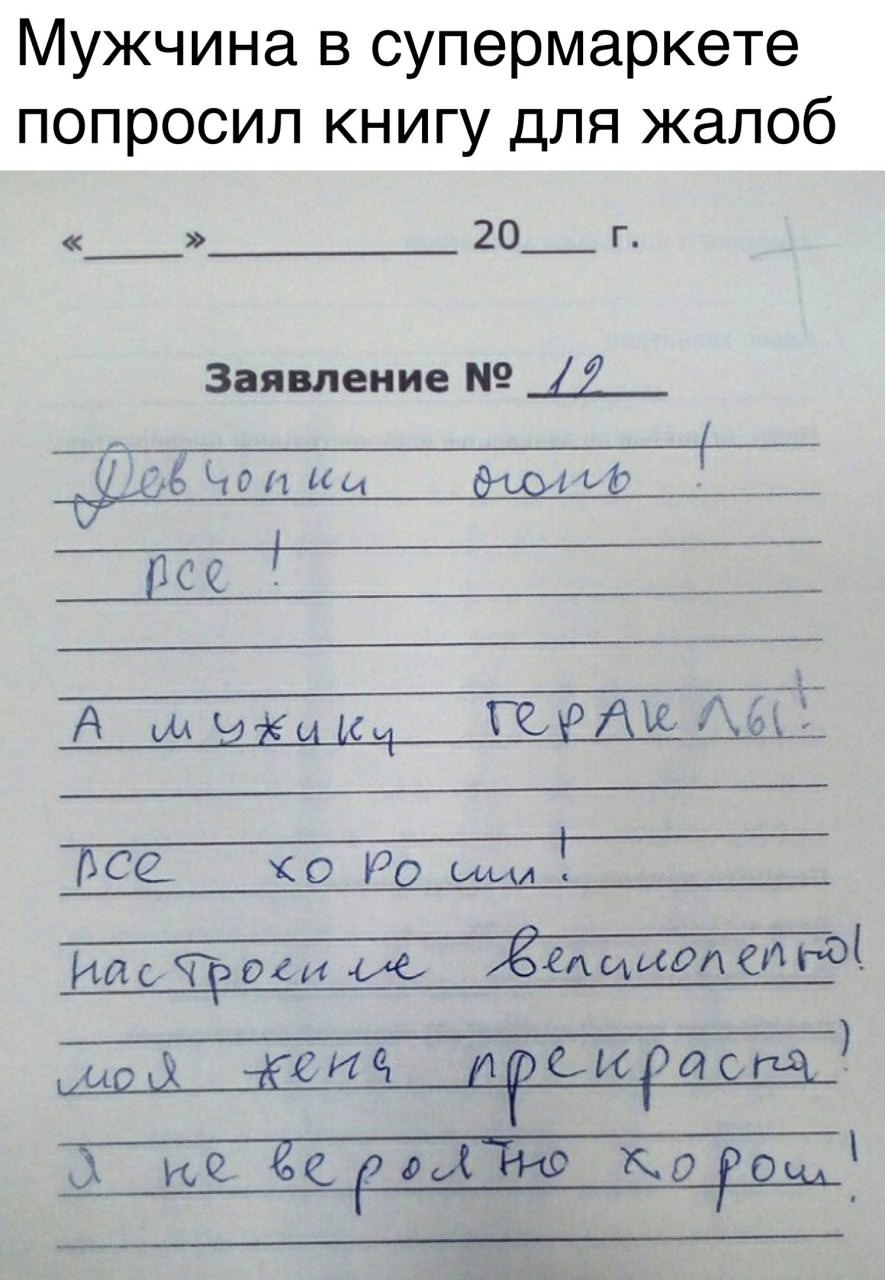 Мужчина в супермаркете
попросил книгу для жалоб
«____»__________ 20___ г.
Заявление № 12
Девчонки огонь!
все!
А мужики ГЕРАКЛЫ!
все хороши!
настроение великолепно!
моя жена прекрасна!
я невероятно хорош!